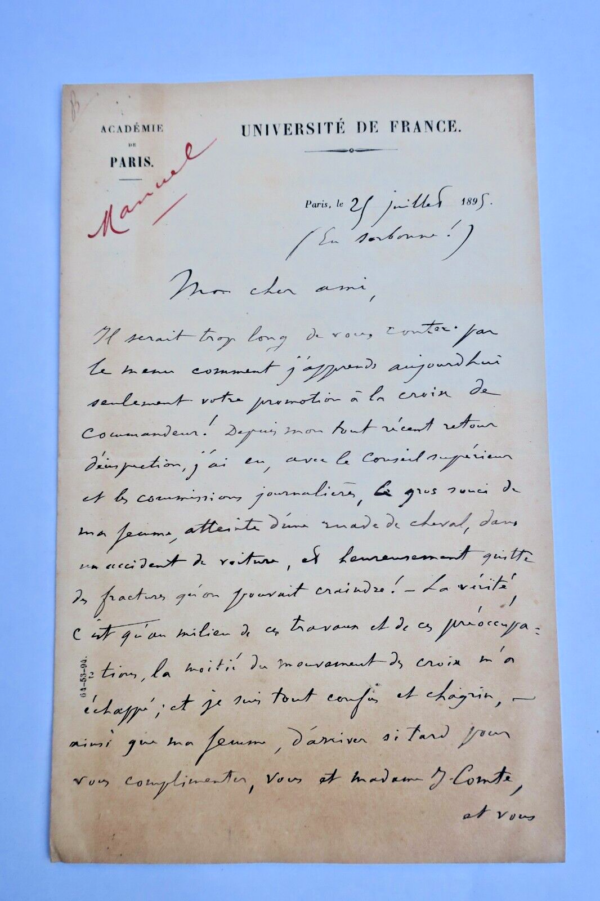 ACADÉMIE
DE
PARIS.
UNIVERSITÉ DE FRANCE.
Manuel
Paris, le 25 juillet 1895.
(En Sorbonne!)
Mon cher ami,
Il serait trop long de vous conter par
le menu comment j'apprends aujourd'hui
seulement votre promotion à la croix de
Commandeur! Depuis mon tout récent retour
d'inspection, j'ai eu, avec le Conseil supérieur
et les commissions journalières, le gros souci de
ma femme, atteinte d'une ruade de cheval, dans
un accident de voiture, et heureusement quitte
des fractures qu'on pouvait craindre! — La vérité,
c'est qu'au milieu de ces travaux et de ces préoccupa=
tions, la moitié du mouvement des croix m'a
échappé; et je suis tout confus et chagrin, —
ainsi que ma femme, d'arriver si tard pour
vous complimenter, vous et madame J. Comte,
et vous
64-53-94.